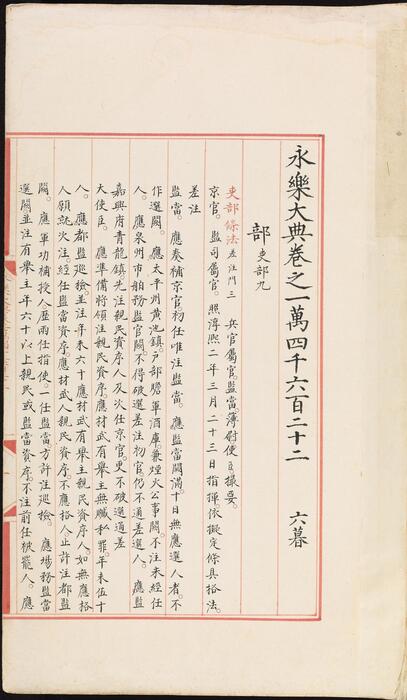 永樂大典卷之一萬四千六百二十二 六暮
部 吏部九
吏部條法 差注門三 兵官屬官。監當。簿尉使臣。撮要。
京官。 監司屬官。照淳熙二年三月二十三日指揮依擬定條具格法。
差注
監當。 應奏補京官初任唯注監當。 應監當闕滿十日無應選人者。不
作選闕。 應太平州黃池鎮。戶部贍軍酒庫。兼煙火公事闕。不注未經任
人。 應泉州市舶務監官闕。不得破選差注初官。仍不通差選人。 應監
嘉興府青龍鎮先注親民資序人。及次任京官。更不破選通差
大使臣。 應準備將領注親民資序。應材武有舉主無贓私罪。年未伍十
人。 應都監巡檢。並注年未六十應材武有舉主親民資序人。如無應格
人願就次注。經任監當資序應材武人。親民資序不應格人。止許注都監
闕。 應軍功補授人。歷兩任指使。一任監當。方許注巡檢。 應場務監當
選闕。並注有舉主年六十以上親民或監當資序。不注前任被罷人。 應